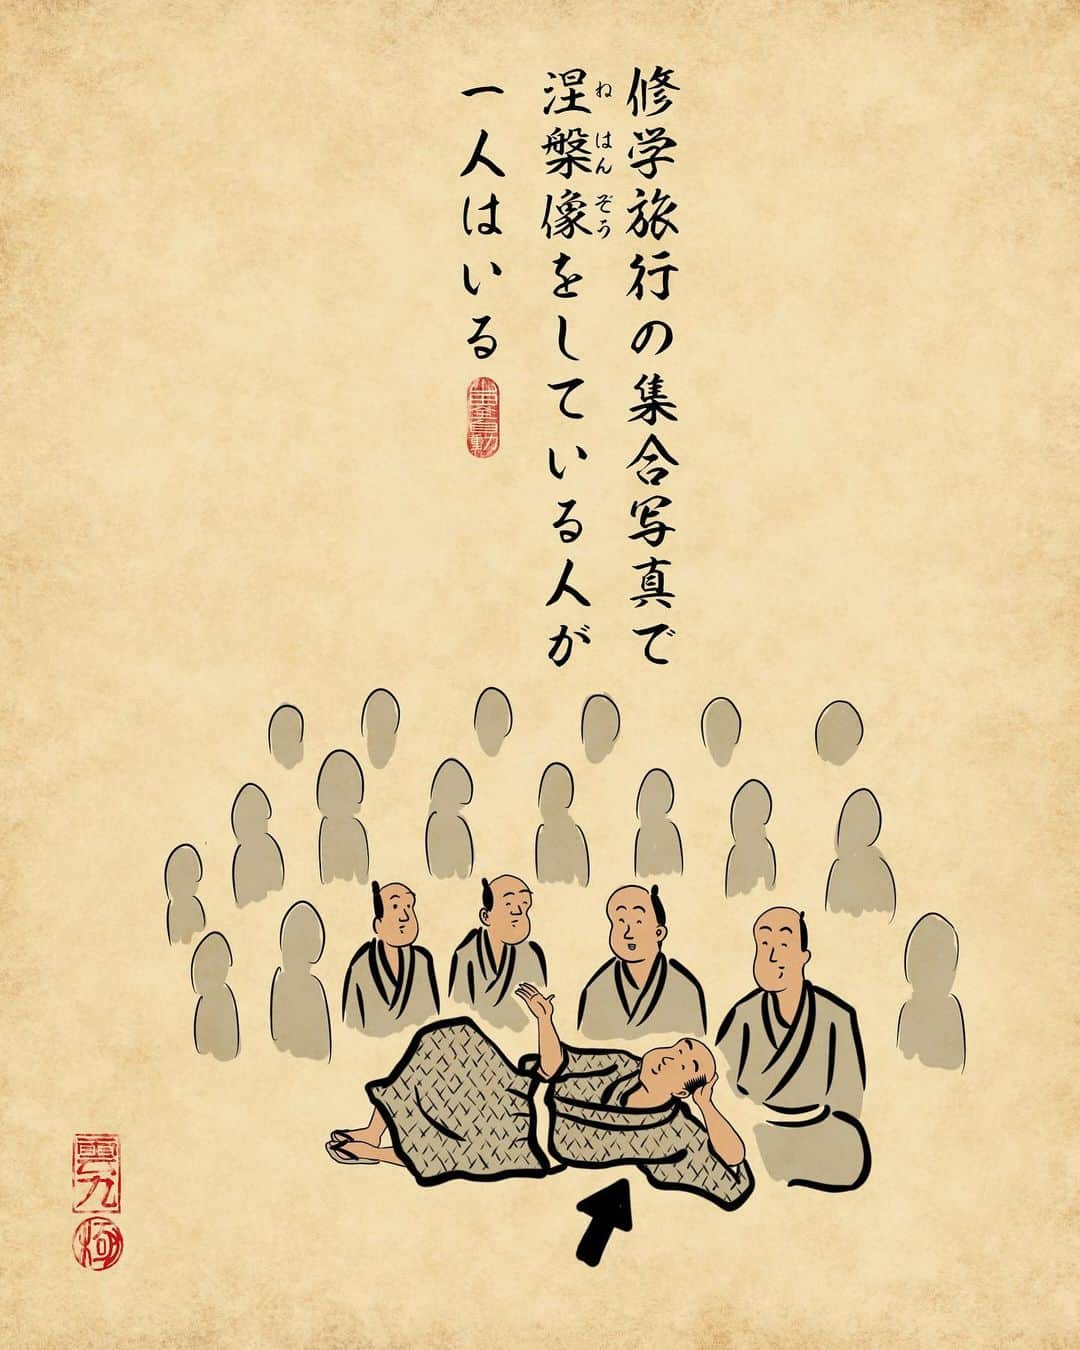 修学旅行の集合写真で
涅槃像をしている人が
ねはんぞう
一人はいる